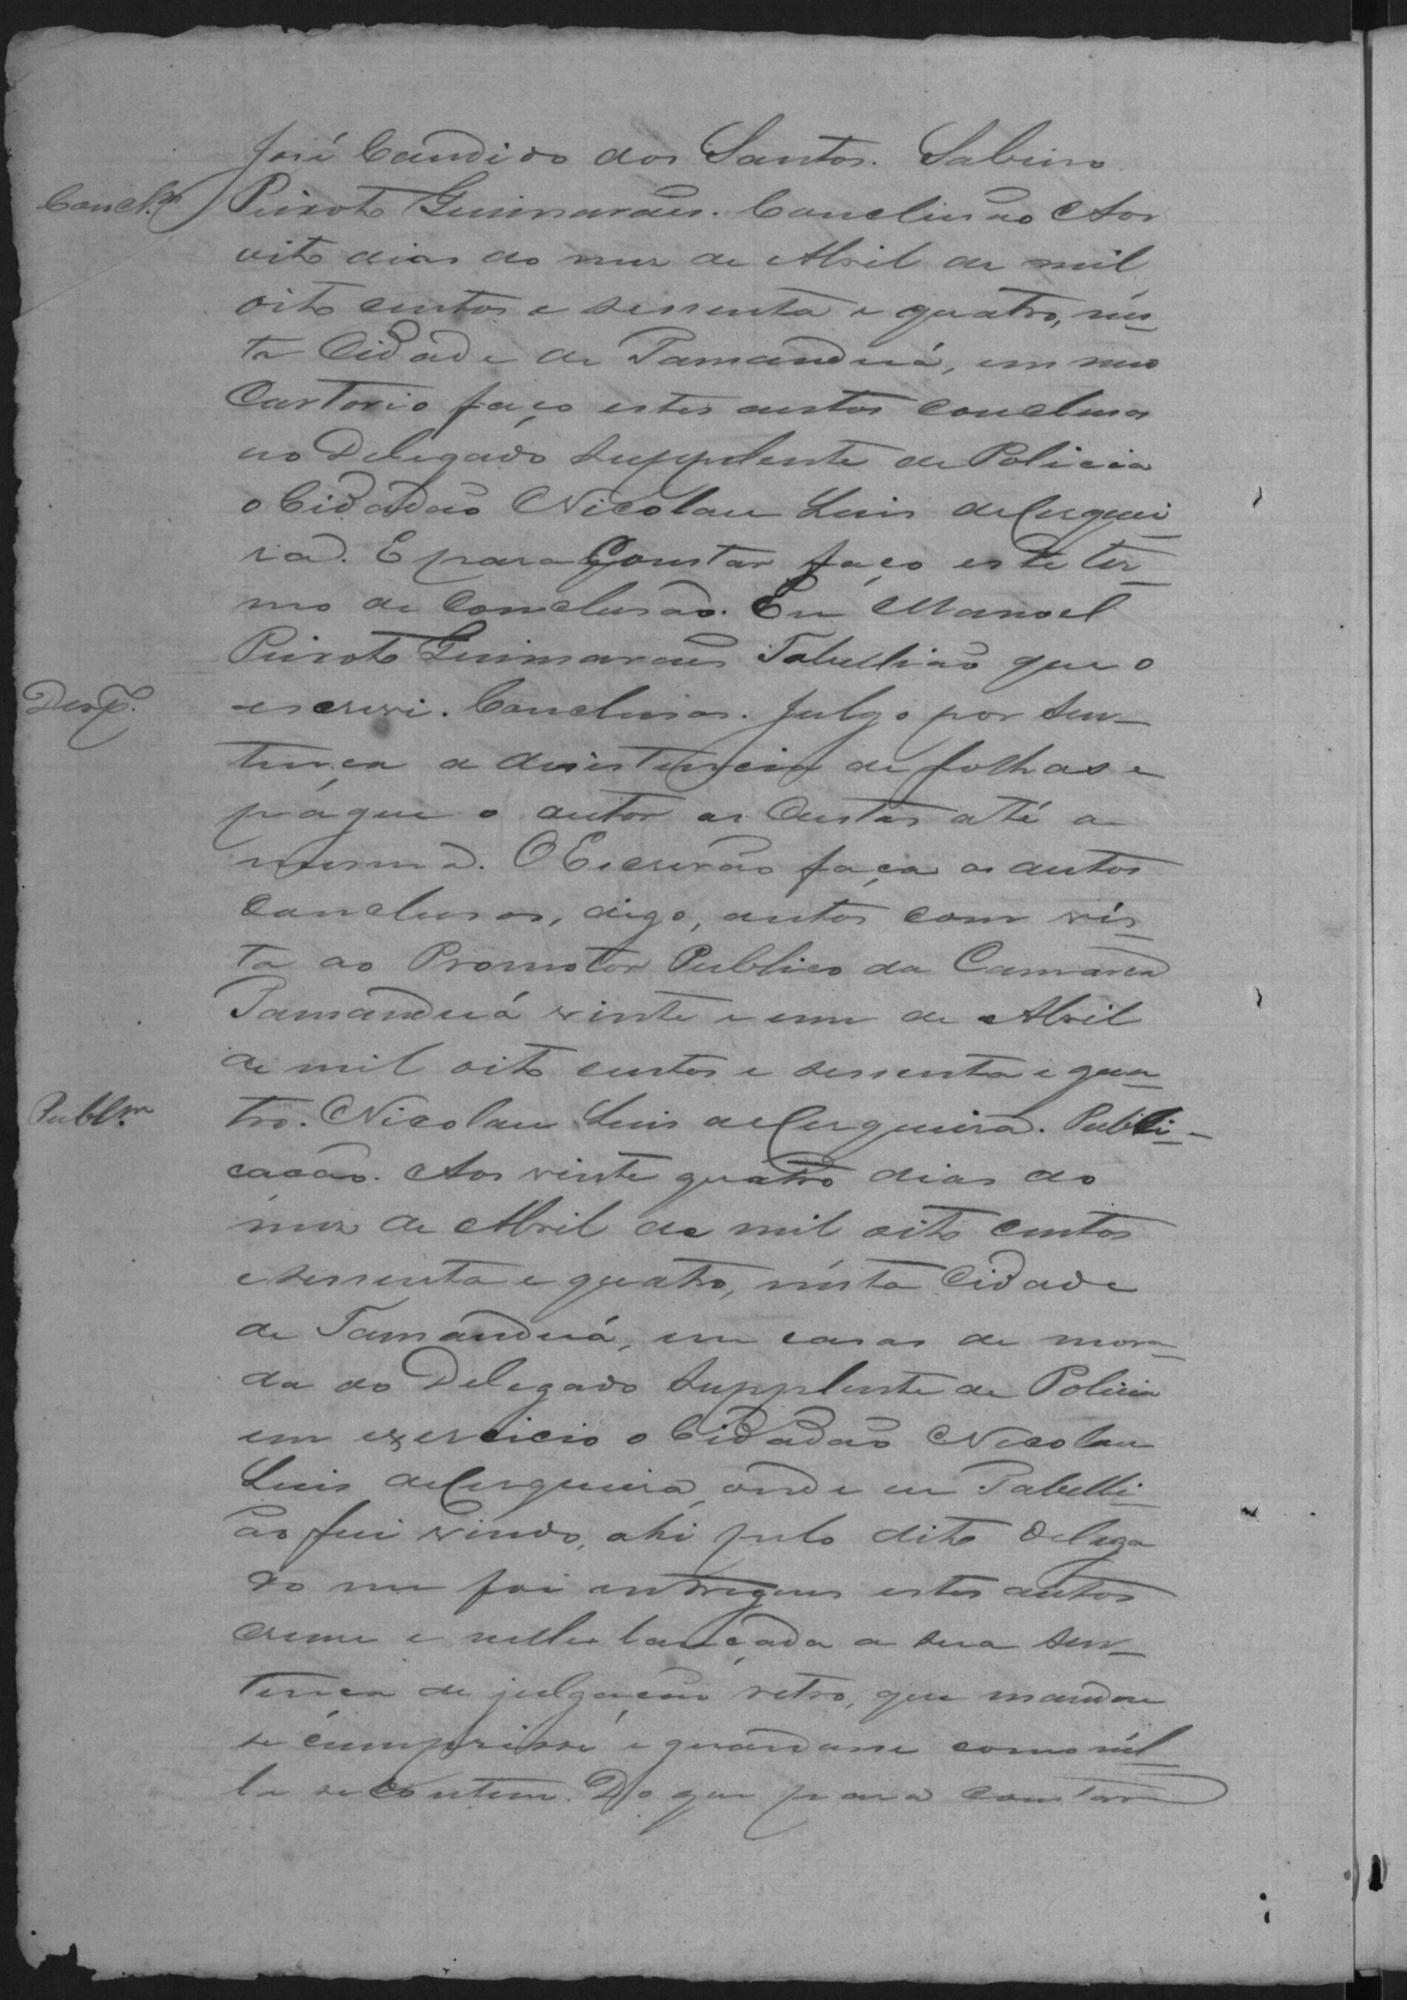 José Candido dos Santos. Sabino
Concl.m Peixoto Guimarães. Conclusão Aos
oito dias do mez de Abril de mil
oito centos e sessenta e quatro, nes-
ta Cidade de Tamanduá, em meo
Cartorio faço estes autos conclusos
ao Delegado Supplente de Policia
o Cidadão Nicolau Luis de Cerquei-
ra. E para Constar faço este ter-
mo de Conclusão. Eu Manoel
Peixoto Guimarães Tabellião que o
Desp. escrevi. Conclusos. Julgo por sen-
tença a desistencia de folhas e
págue o autor as Custas até a
mesma. O Escrivão faça os autos
Conclusos, digo, autos com vis-
ta ao Promotor Publico da Comarca
Tamanduá vinte e um de Abril
de mil oito centos e sessenta e qua-
Publ.m tro. Nicolau Luis de Cerqueira. Publi-
cação. Aos vinte quatro dias do
mez de Abril de mil oito centos
e sessenta e quatro, nésta Cidade
de Tamanduá, em casas de mora-
da do Delegado Supplente de Policia
em exercicio o Cidadão Nicolau
Luis de Cerqueira, onde eu Tabelli-
ão fui vindo, ahi pelo dito Delega
do me foi entregues estes autos
crime e nelles lançada a sua sen-
tença de julgação retro, que mandou
se cumprisse e guardasse como nél-
la se contem. Do que para constar